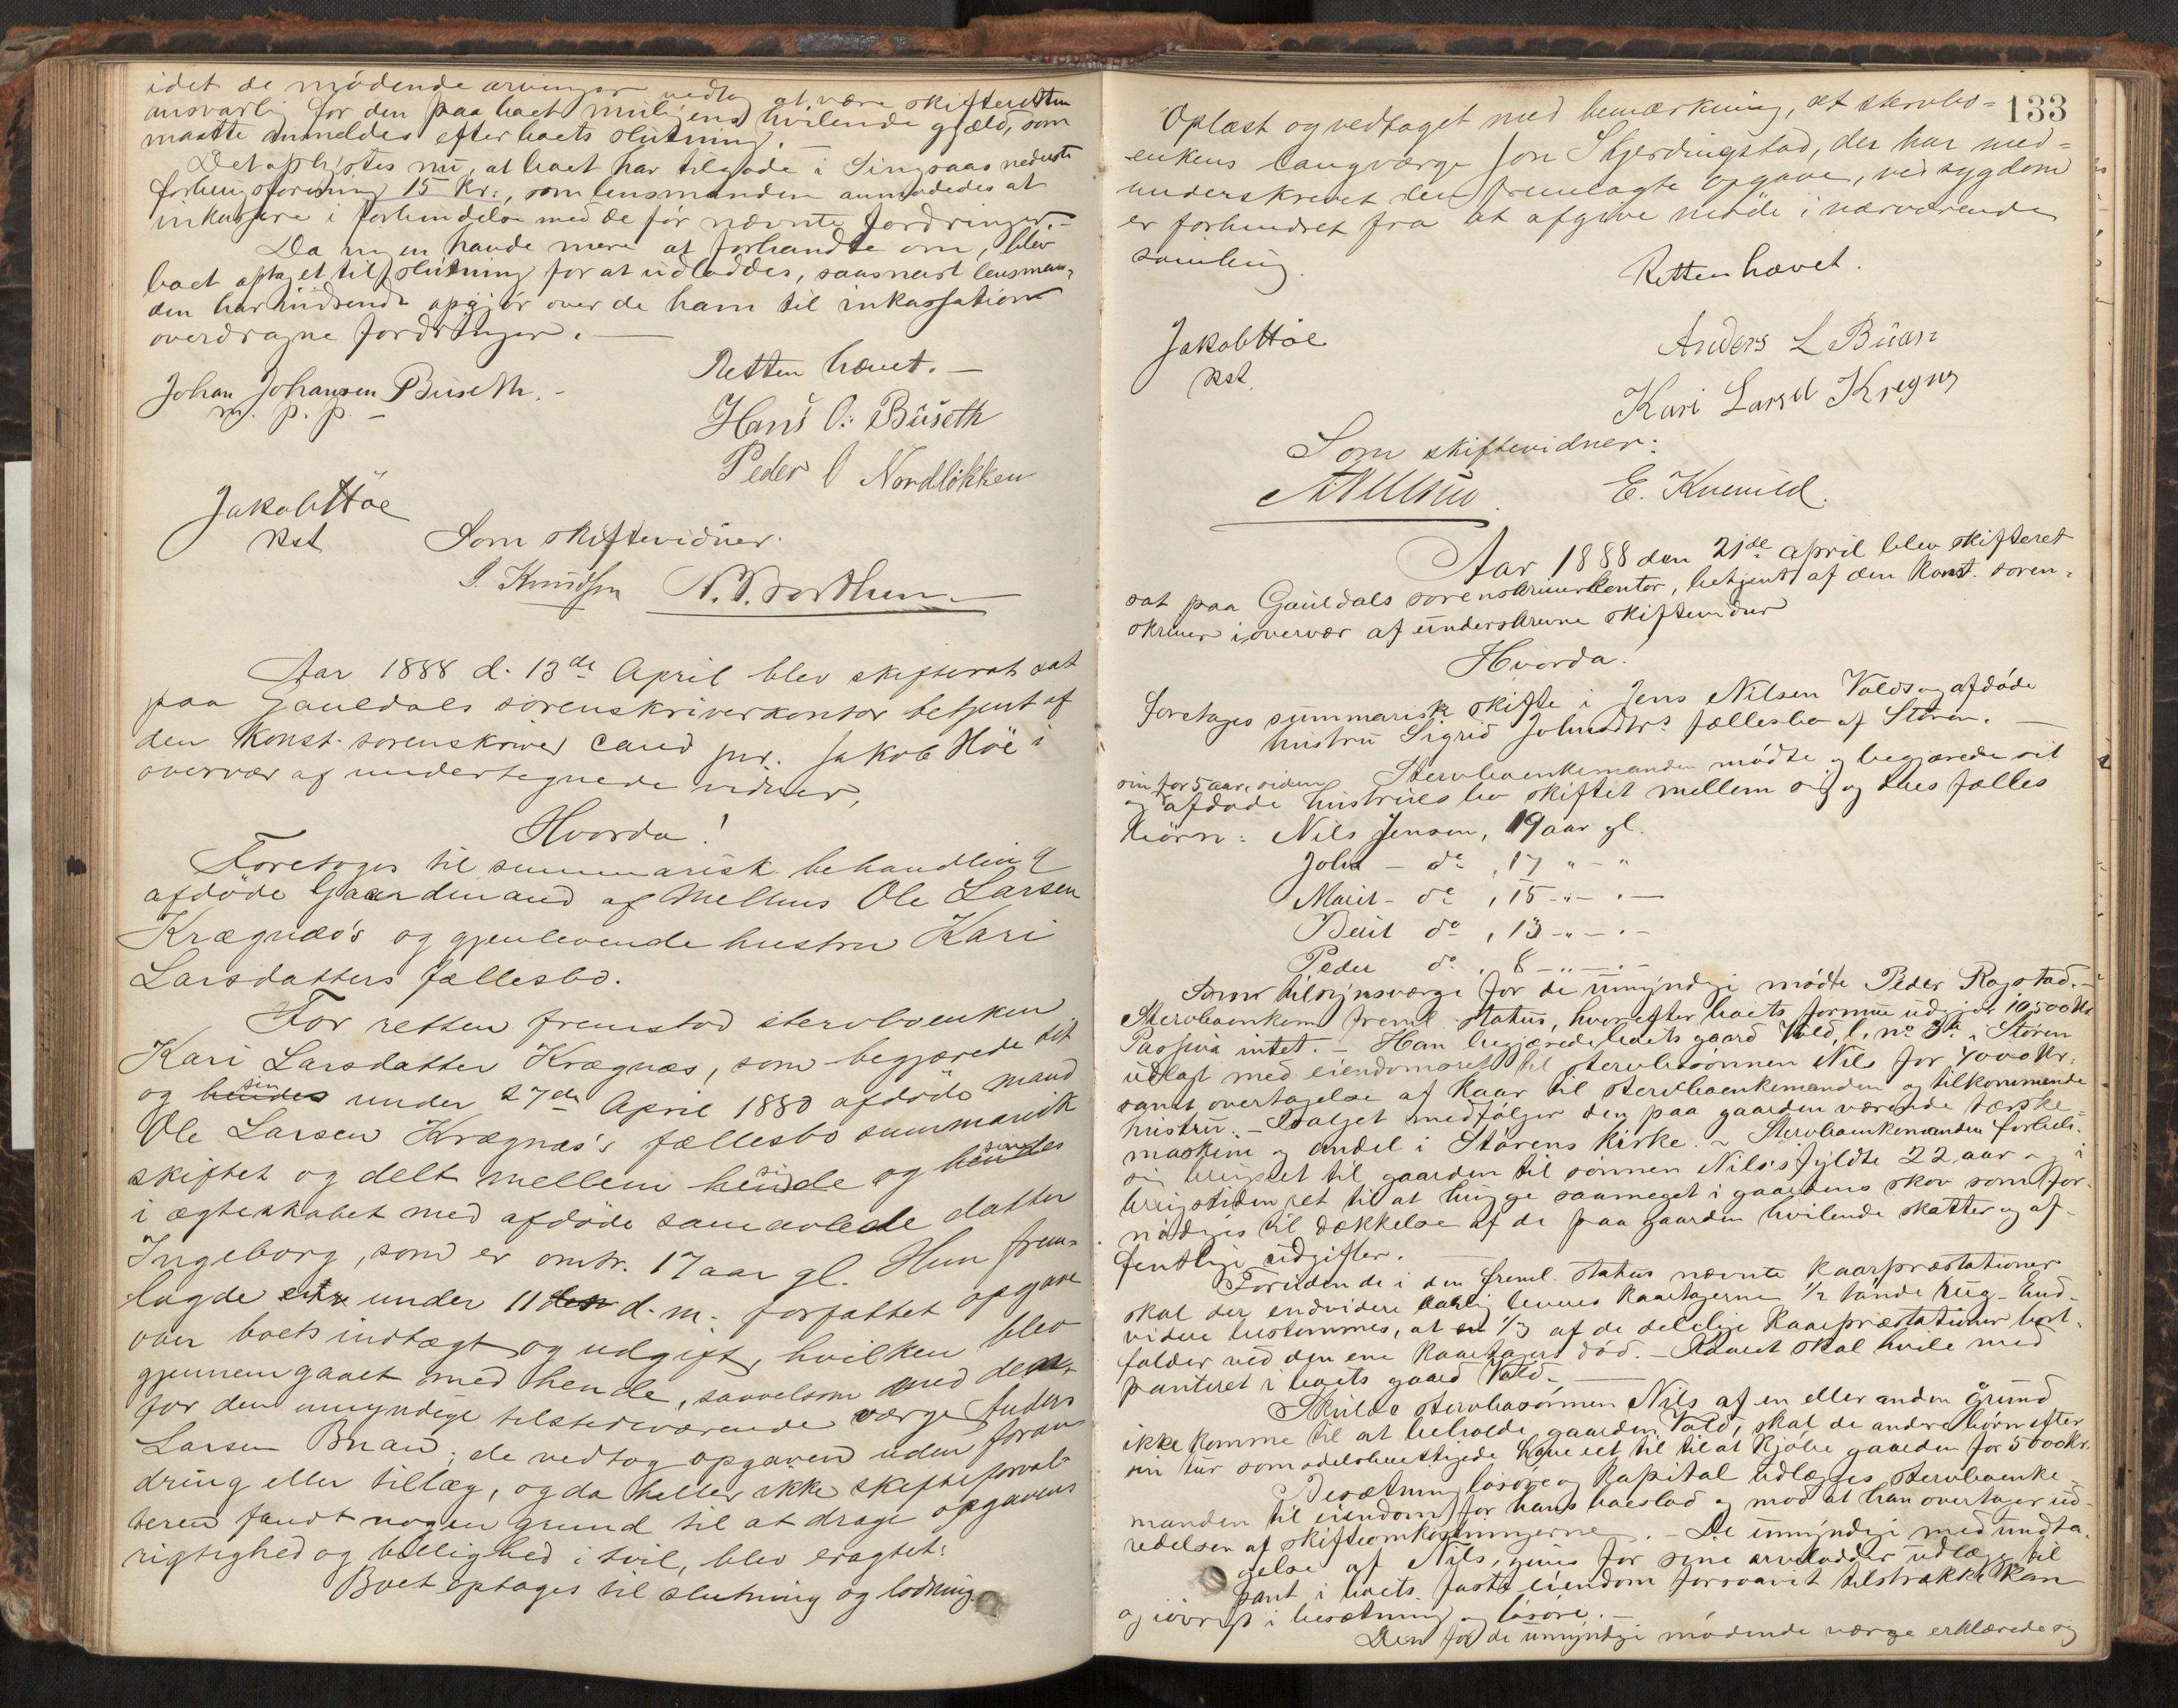 idet de mødende arvinger vedtog at være skifteretten
ansvarlig for den paa boet muligens hvilende gjæld, som
maatte anmeldes efter boets slutning. —
Det oplystes nu, at boet har tilgode i Singsaas nederste
forbrugsforening 15 kr:, som lensmanden anmodedes at
inkassere i forbindelse med de før nævnte fordringer. —
Da ingen havde mere at forhandle om, blev
boet optaget til slutning for at udloddes, saasnart lensman-
den har indsendt opgjør over de ham til inkassation
overdragne fordringer. —
Retten hævet. —
Johan Johansen Buseth. -
m. p. p. -
Hans O: Buseth
Peder O Nordløkken
Jakob Høe
kst
Som skiftevidner.
J Knudsen
Aar 1888 d. 13de April blev skifteret sat
paa Gauldals sorenskriverkontor betjent af
den konst. sorenskriver cand jur. Jakob Høe i
overvær af undertegnede vidner,
Hvorda!
Foretoges til summarisk behandling
afdøde Gaardmand af Melhus Ole Larsen
Krægnæs's og gjenlevende hustru Kari
Larsdatters fællesbo.
For retten fremstod stervboenken
Kari Larsdatter Krægnæs, som begjærede sit
og hendes sin under 27de April 1880 afdøde mand
Ole Larsen Krægnæs's fællesbo summarisk
skiftet og delt mellem hende sig og hendes sin
i ægteskabet med afdøde samavlede datter
Ingeborg, som er omtr. 17 aar gl. Hun frem-
lagde en under 11 den d. m. forfattet opgave
over boets indtægt og udgift, hvilken blev
gjennemgaaet med hende, saavelsom med den
for den umyndige tilstedeværende værge Anders
Larsen Buan; de vedtog opgaven uden foran-
dring eller tillæg, og da heller ikke skifteforval-
teren fandt nogen grund til at drage opgavens
rigtighed og billighed i tvil, blev eragtet:
Boet optages til slutning og lodning.
133
Oplæst og vedtaget med bemærkning, at stervbo-
enkens laugværge Jon Skjerdingstad, der har med-
underskrevet den fremlagte opgave, ved sygdom
er forhindret fra at afgive møde i nærværende
samling.
Retten hævet.
Jakob Høe
kst.
Anders L Buan
Kari Larsd Kregnes
Som skiftevidner:
E. Kvenild.
Aar 1888 den 21de april blev skifteret
sat paa Gauldals sorenskriverkontor, betjent af den konst. soren-
skriver i overvær af underskrevne skiftevidner
Hvorda!
foretoges summarisk skifte i Jens Nilsen Volds og afdøde
hustru Sigrid Johnsdtrs fællesbo af Støren. —
Stervboenkemanden mødte og begjærede sit
og sin for 5 aar siden afdøde hustrues bo skiftet mellem sig og dues fælles
børn: Nils Jensen, 19 aar gl.
John - do , 17 " - "
Marit - do , 15 - " - " -
Berit do , 13 - " - " -
Peder do , 8 - " - " -
Som tilsynsværge for de umyndige mødte Peder Rogstad. —
Stervboenkem. freml. status, hvorefter boets formue udgjør 10,500 kr
Passiva intet. — Han begjærede boets gaard Vold, l. no 3a i Støren
udlagt med eiendomsret til stervbosønnen Nils for 4000 kr.
samt overtagelse af kaar til stervboenkemanden og tilkommende
hustru. — I salget medfølger den paa gaarden værende tærske-
maskine og andel i Størens kirke. ~ Stervboenkemanden forbeh.
sig brugsret til gaarden til sønnen Nils's fyldte 22 aar og i
brugstiden ret til at hugge saameget i gaardens skov som for-
nødiges til dækkelse af de paa gaarden hvilende skatter og of-
fentlige udgifter. —
Foruden de i den freml. status nævnte kaarpræstationer
skal der endvidere aarlig leveres kaartagerne 1/2 tønde rug. End-
videre bestemmes, at 1/3 af de delelige kaarpræstationer bort-
falder ved den ene kaartagers død. — Kaaret skal hvile med
panteret i boets gaard Vold. —
Skulde stervbosønnen Nils af en eller anden grund
ikke komme til at beholde gaarden Vold, skal de andre børn efter
sin tur som odelsberettigede have ret til til at kjøbe gaarden for 5000 kr.
Besætning løsøre og kapital udlægges stervboenke-
manden til eiendom for hans boeslod og mod at han overtager ud-
redelsen af skifteomkostningerne. — De umyndige med undta-
gelse af Nils, gives for sine arvelodder udlæg til
pant i boets faste eiendom forsaavit tilstrække kan
og iøvrigt i besætning og løsøre. —
Den for de umyndige mødende værge erklærede sig